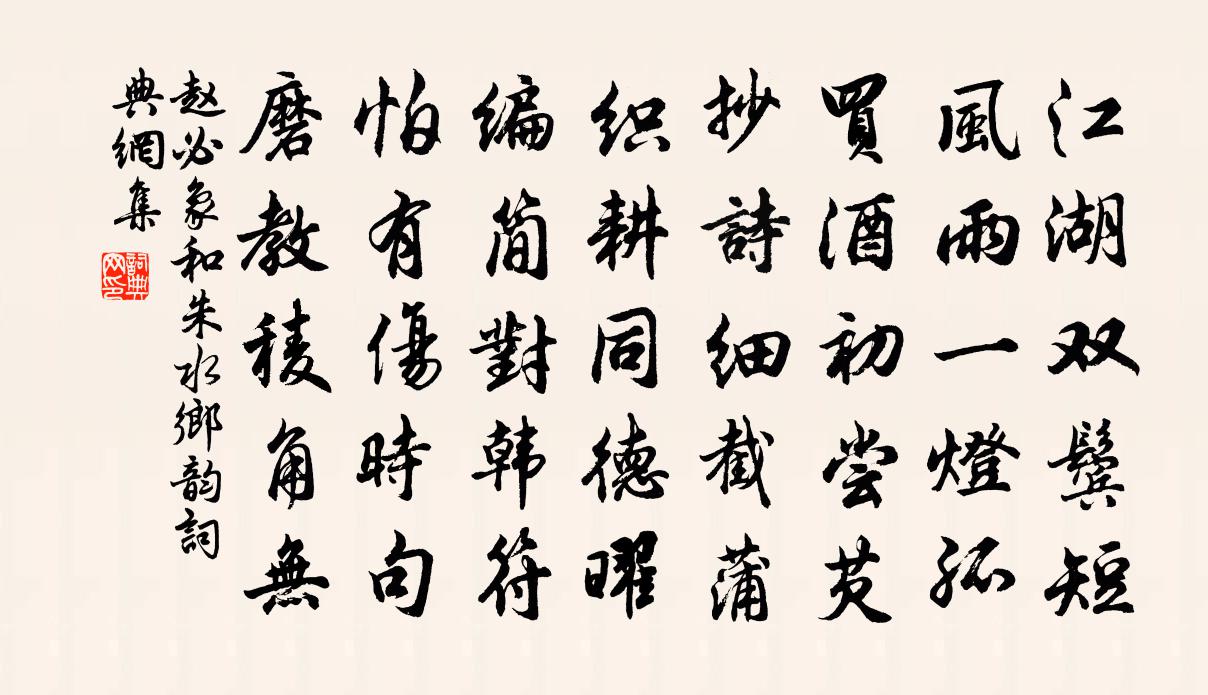 江湖双鬓短
風雨一燈孤
買酒初尝芡
抄詩细截蒲
织耕同德曜
编简對韩符
怕有傷時句
磨教稜角無
赵必象和朱水鄉韵詞
典網集
詞典
网印